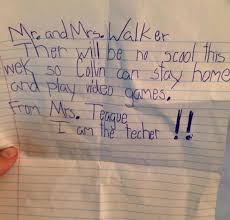 Mr. and Mrs. Walker
Ther will be no scool this
wek so Colin can stay home
and play video games.
From Mrs. Teague
I am the techer !!